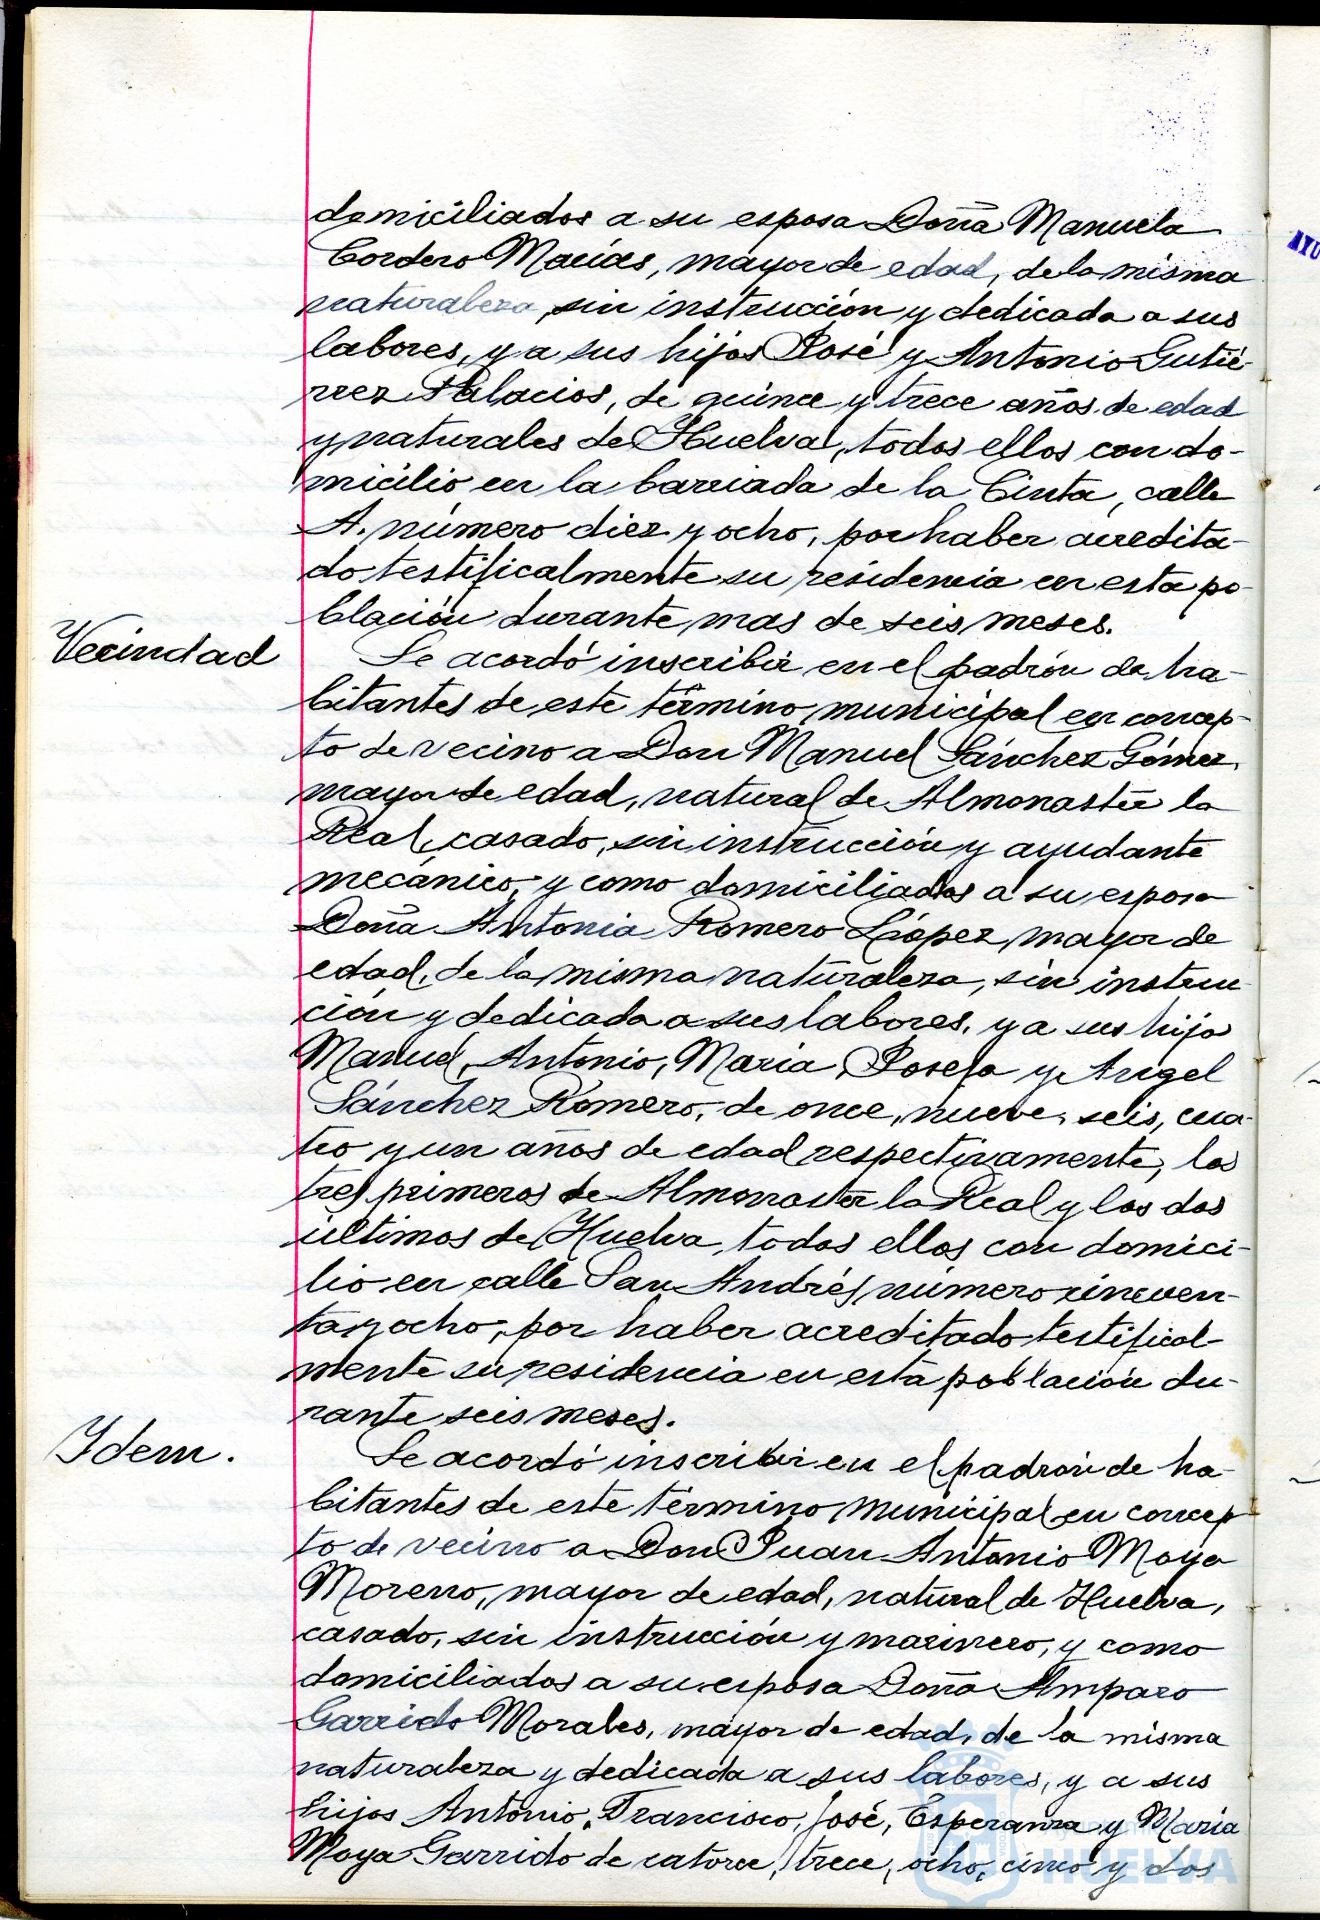 domiciliados a su esposa Doña Manuela
Cordero Macías, mayor de edad, de la misma
naturaleza, sin instrucción y dedicada a sus
labores, y a sus hijos José y Antonio Gutié-
rrez Palacios, de quince y trece años de edad
y naturales de Huelva, todos ellos con do-
micilio en la barriada de la Cinta, calle
A. número diez y ocho, por haber acredita-
do testificalmente su residencia en esta po-
blación durante mas de seis meses.
Vecindad
Se acordó inscribir en el padrón de ha-
bitantes de este término municipal en concep-
to de vecino a Don Manuel Sánchez Gómez,
mayor de edad, natural de Almonaster la
Real, casado, sin instrucción y ayudante
mecánico, y como domiciliados a su esposa
Doña Antonia Romero López, mayor de
edad, de la misma naturaleza, sin instruc-
ción y dedicada a sus labores, y a sus hijos
Manuel, Antonio, María, Josefa y Angel
Sánchez Romero, de once, nueve, seis, cua-
tro y un años de edad respectivamente, los
tres primeros de Almonaster la Real y los dos
últimos de Huelva, todos ellos con domici-
lio en calle San Andrés número cincuen-
ta y ocho, por haber acreditado testifical-
mente su residencia en esta población du-
rante seis meses.
Idem.
Se acordó inscribir en el padrón de ha-
bitantes de este término municipal en concep-
to de vecino a Don Juan Antonio Moya
Moreno, mayor de edad, natural de Huelva,
casado, sin instrucción y marinero, y como
domiciliados a su esposa Doña Amparo
Garrido Morales, mayor de edad, de la misma
naturaleza y dedicada a sus labores, y a sus
hijos Antonio, Francisco, José, Esperanza y María
Moya Garrido de catorce, trece, ocho, cinco y dos
HUELVA